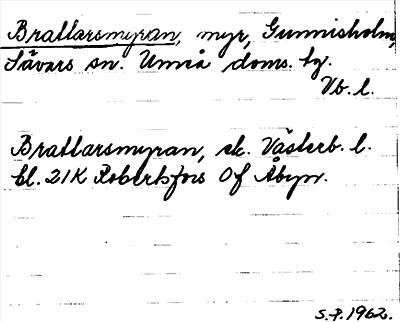 Brattarsmyran, myr, Gunnisholm,
Sävars sn. Umeå doms. tg.
Vb. l.
Brattarsmyran, ek. Västerb. l.
bl. 21K Robertsfors 0f Åbyn.
S.P. 1962.